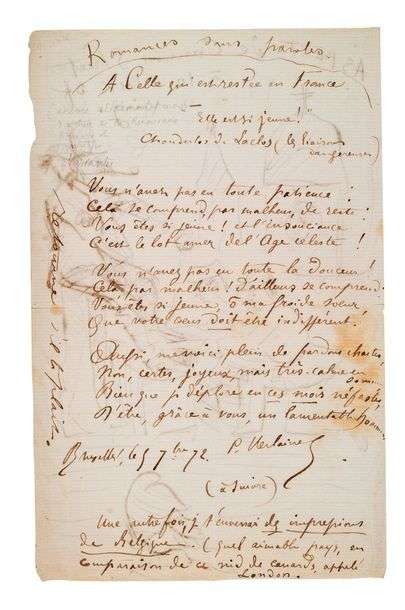 Romances sans paroles
A Celle qui est restée en France
"Elle est si jeune!"
Choderlos de Laclos (les liaisons
dangereuses)
Vous n'avez pas eu toute patience :
Cela se comprend par malheur, de reste ;
Vous êtes si jeune ! et l'insouciance
C'est le lot amer de l'Age celeste !
Vous n'avez pas eu toute la douceur !
Cela par malheur ! D'ailleurs se comprend.
Vous êtes si jeune, ô ma froide soeur
Que votre coeur doit être indifférent !
Aussi, me voici plein de pardons chastes,
Non, certes, joyeux, mais très-calme en
somme
Bien que je déplore en ces mois néfastes
D'être, grâce à vous, un lamentable
homme.
Bruxelles, le 5 7bre 72. P. Verlaine
(à suivre)
Une autre fois, j't'enverrai des impressions
de Belgique. (quel aimable pays, en
comparaison de ce nid de canards, appelé
London.